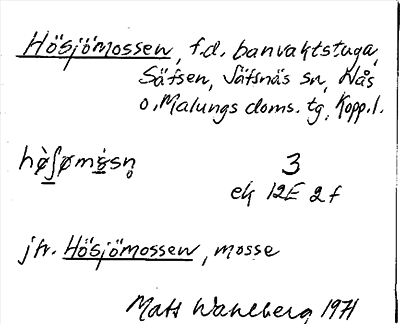 Hösjömossen, f.d. banvaktstuga,
Säfsen, Säfsnäs sn, Nås
o. Malungs doms. tg, Kopp.l.
3
ek 12E 2f
jfr. Hösjömossen, mosse
Mats Wahlberg 1971